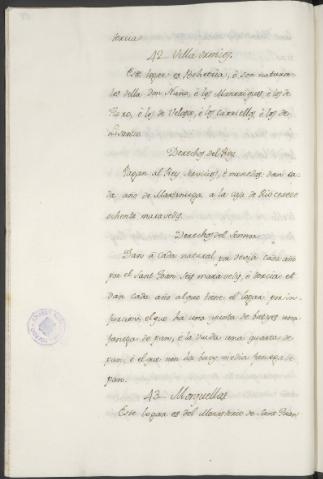 tercia.
42 Villa armiesos.
Este logar es Behetria, é son natura-
les della Don Nuño, é los Manrriques, é los de
Faro, é los de Velasco, é los Carriellos, é los de
Derechos del Rey
Pagan al Rey Servicios, é monedas: dan ca-
da año de Martiniega a la caja de Rio cerezo
ochenta maravedis.
Derechos del Sennor
Dan á cada natural por devisa cada año
por el Sant Joan seis maravedis, é tercia: et
dan cada año al que tiene el logar por in-
furcion, el que ha una yunta de bueyes una
fanega de pan, é la viuda una quarta de
pan, é el que non ha buey media fanega de
pan.
43 Morquellas
Este logar es del Monesterio de Sant Juan